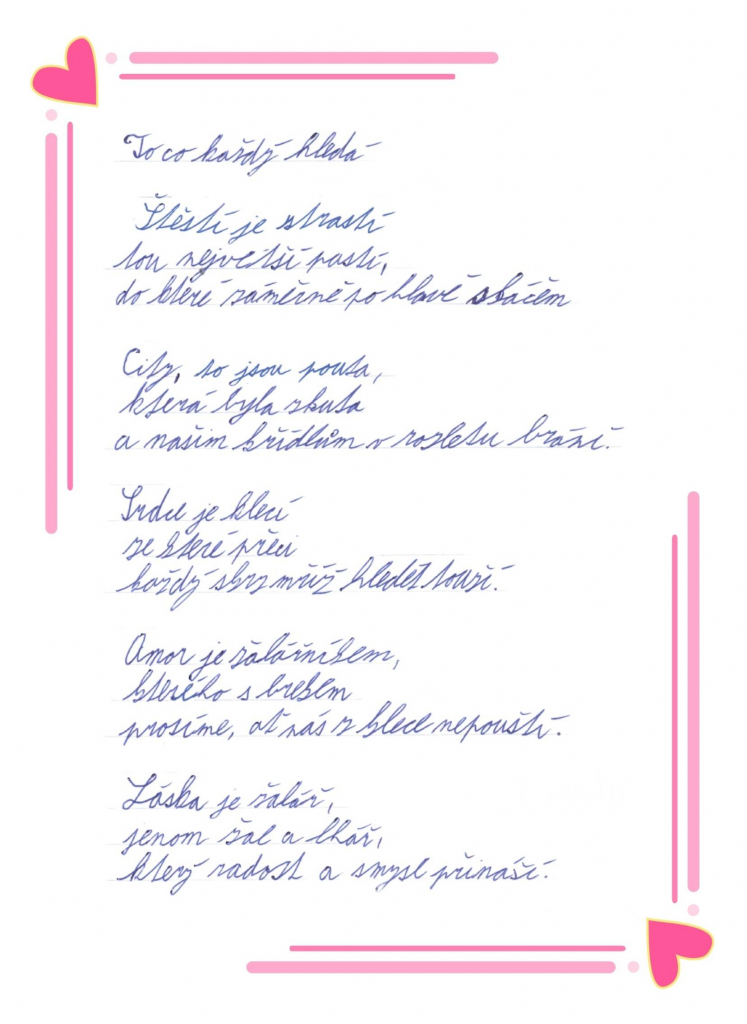 To co každý hledá
Štěstí je strastí
tou největší pastí,
do které záměrně po hlavě skáčem
City, to jsou pouta,
která byla skuta
a našim křídlům v rozletu brání.
Srdce je klecí
ze které přeci
každý skrz mříž hledět touží.
Amor je žalářníkem,
kterého s brekem
prosíme, ať nás z klece nepouští.
Láska je žalář,
jenom žal a lhář,
který radost a smysl přináší.